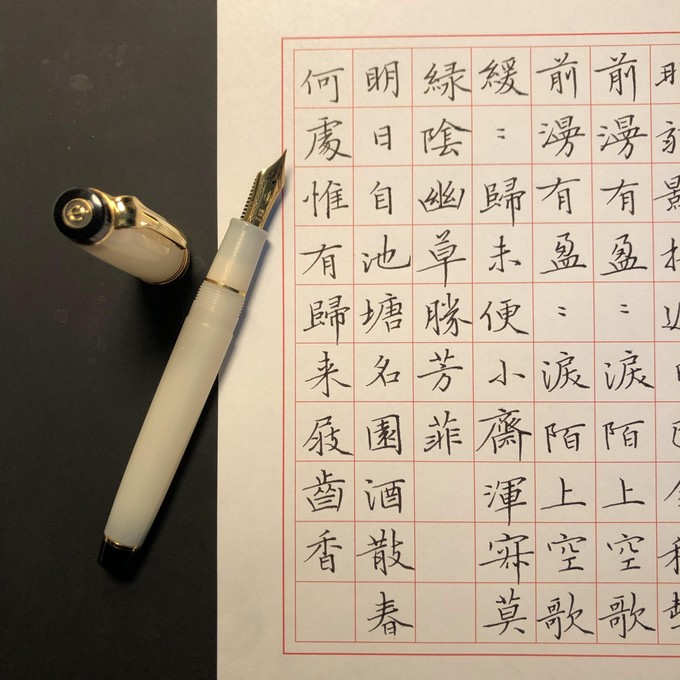 前漫有盈〻淚陌上空歌
前漫有盈〻淚陌上空歌
緩〻歸未便小齋渾寂莫
緑陰幽草勝芳菲
明日自池塘名園酒散春
何處惟有歸来屐齒香